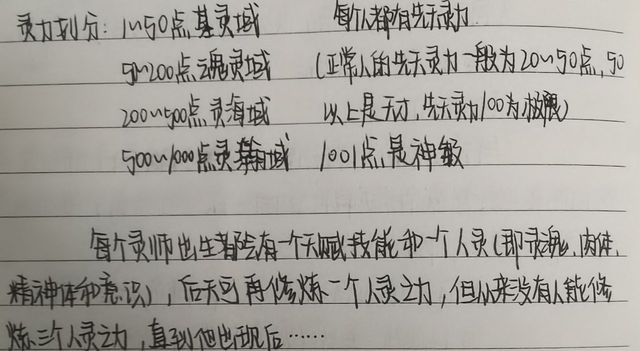 灵力划分：1~50点基灵域 每个人都有先天灵力
51~200点魂灵域 (正常人的先天灵力一般为20~50点，50
200~500点灵海域 以上是天才，先天灵力100为极限)
500~1000点灵域 1001点是神级
每个灵师出生都会有一个天赋技能和一个人灵(即灵魂，肉体，
精神体和意识)，后天可再修炼一个人灵之力，但从来没有人能修
炼三个人灵之力，直到他出现后……